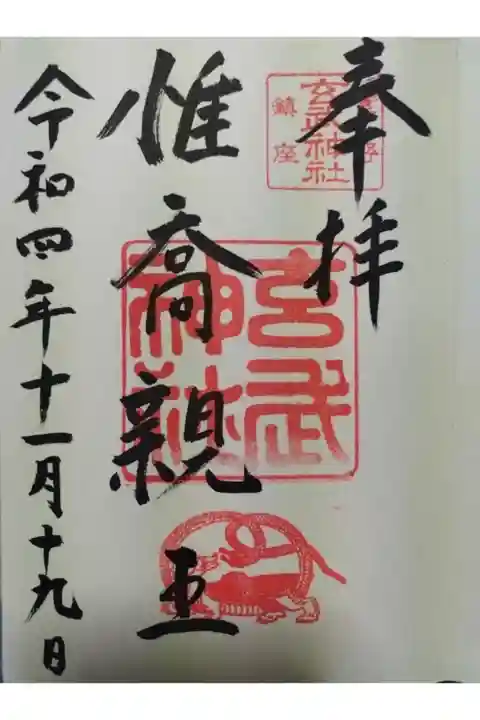 奉拝
玄武神社
鎮座
玄武
神社
惟喬親王
令和四年十一月十九日